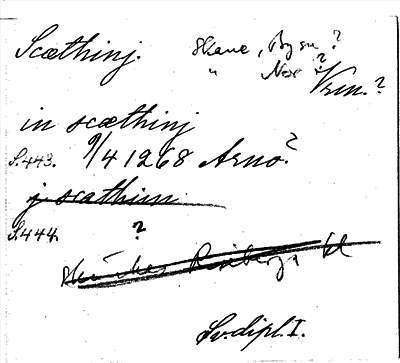 Scæthinj. Skåne, Bysn?
" Nöx?
Vrm.?
in scæthinj
S.443. 9/4 1268 Arno?
j scæthini
S.444. ?
Riseberga kl
Sv.dipl.I.